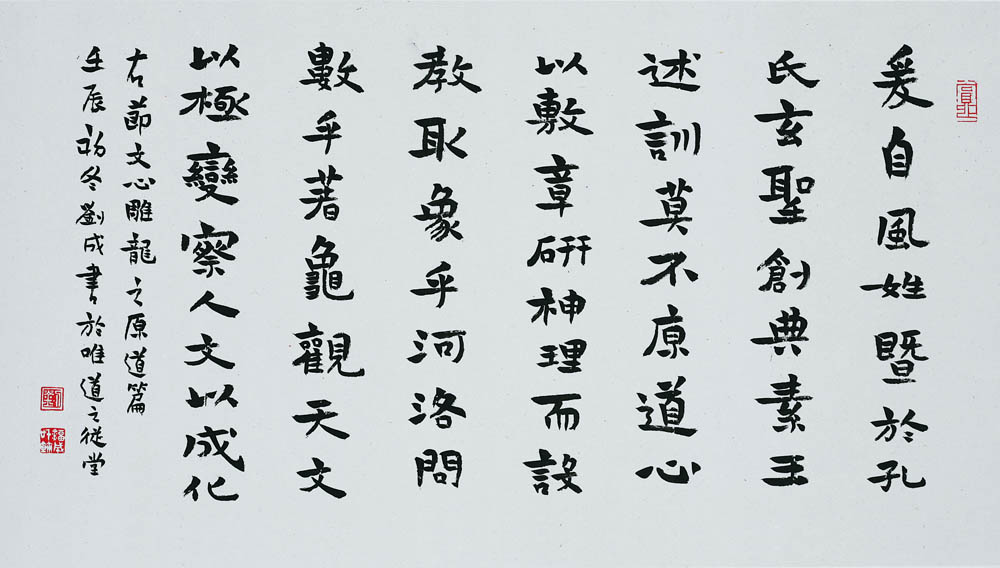 爰自風姓暨於孔
氏玄聖創典素王
述訓莫不原道心
以敷章研神理而設
教取象乎河洛問
數乎著龜觀天文
以極變察人文以成化
右節文心雕龍之原道篇
壬辰初冬劉成書於唯道之從堂